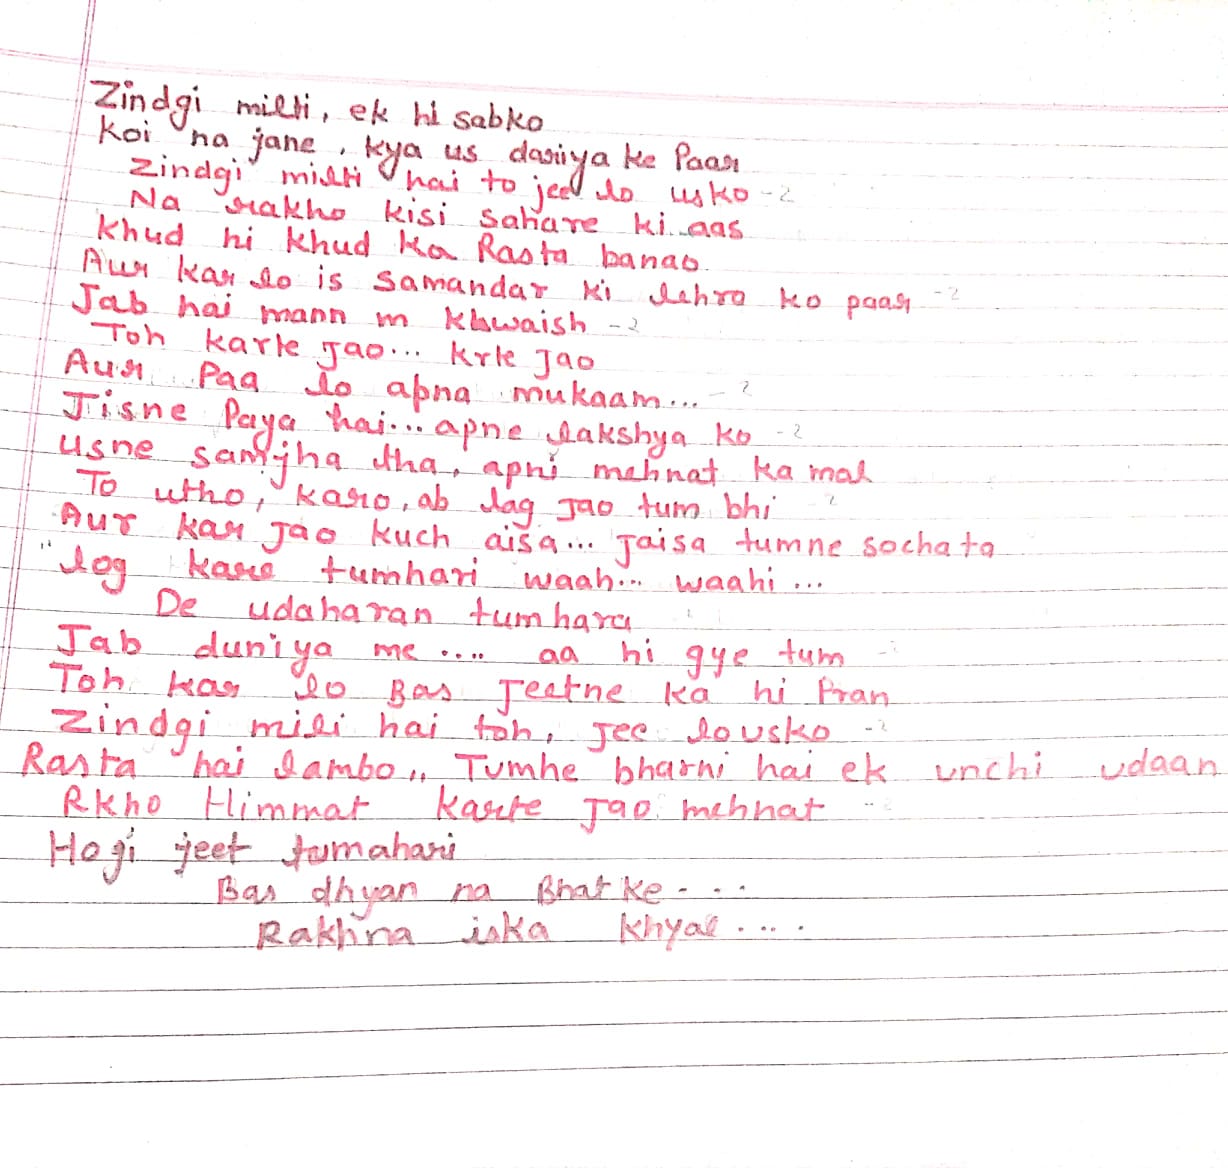 Zindgi milti, ek hi sabko
Koi na jane, kya us dariya ke Paar
Zindgi milti hai to jee lo usko -2
Na rakho kisi sahare ki aas
Khud hi khud ka Rasta banao
Aur kar lo is samandar ki lehro ko paar -2
Jab hai mann m khwaish -2
Toh karte jao... krte jao
Aur Paa lo apna mukaam... -2
Jisne Paya hai... apne lakshya ko -2
Usne samjha tha, apni mehnat ka mal
To utho, karo, ab lag jao tum bhi 2
Aur kar jao kuch aisa... jaisa tumne socha ta
"log kare tumhari waah... waahi...
De udaharan tumhara
Jab duniya me .... aa hi gye tum
Toh kar lo Bas Jeetne ka hi Pran
Zindgi mili hai toh, jee lo usko -2
Rasta hai lambo,, Tumhe bharni hai ek unchi udaan
Rkho Himmat karte jao mehnat -2
Hogi jeet tumahari
Bas dhyan na Bhatke - . .
Rakhna iska khyal . .. .